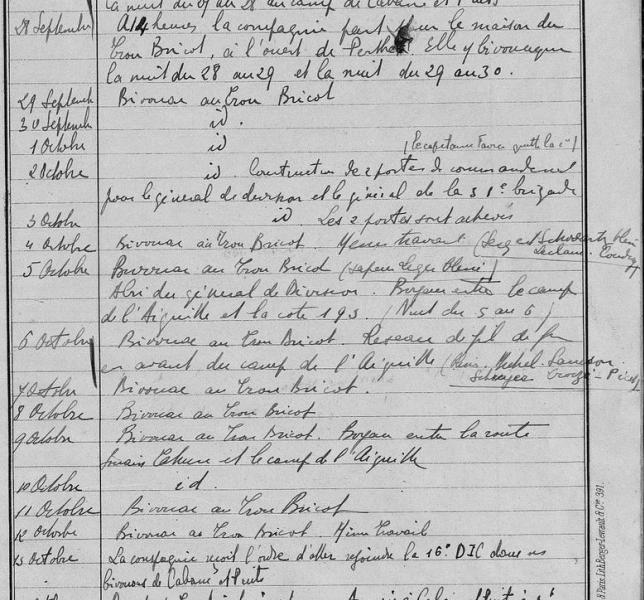 la nuit du 27 au 28 au camp de Cabane et Puits
28 Septembre A 14 heures la compagnie part pour la maison du
Trou Bricot, à l'ouest de Perthes Elle y bivouaque
la nuit du 28 au 29 et la nuit du 29 au 30.
29 Septemb Bivouac au Trou Bricot
30 Septemb id.
1 Octobre id (le capitaine Favre quitte la Cie)
2 Octobre id. Construction de 2 postes de commandement
pour le général de division et le général de la 51e brigade
3 Octobre id Les 2 postes sont achevés
4 Octobre Bivouac au Trou Bricot. Même travail (Sergent Schwartz
Leclanc.
5 Octobre Bivouac au Trou Bricot (sapeur Leger blessé)
Abri du général de Division. Boyau entre le camp
de l'Aiguille et la cote 193. (Nuit du 5 au 6)
6 Octobre Bivouac au Trou Bricot. Reseau de fil de fer
en avant du camp de l'Aiguille ( Michel. Samson
7 Octobre Bivouac au Trou Bricot.
8 Octobre Bivouac au Trou Bricot
9 Octobre Bivouac au Trou Bricot. Boyau entre la route
Souain Tahure et le camp de l'Aiguille
10 Octobre id.
11 Octobre Bivouac au Trou Bricot
12 Octobre Bivouac au Trou Bricot Même Travail
13 Octobre La compagnie reçoit l'ordre d'aller rejoindre la 16e DIC dans ses
bivouacs de Cabane et Puits
Paris, Lith. Berger-Levrault & Cie 391.